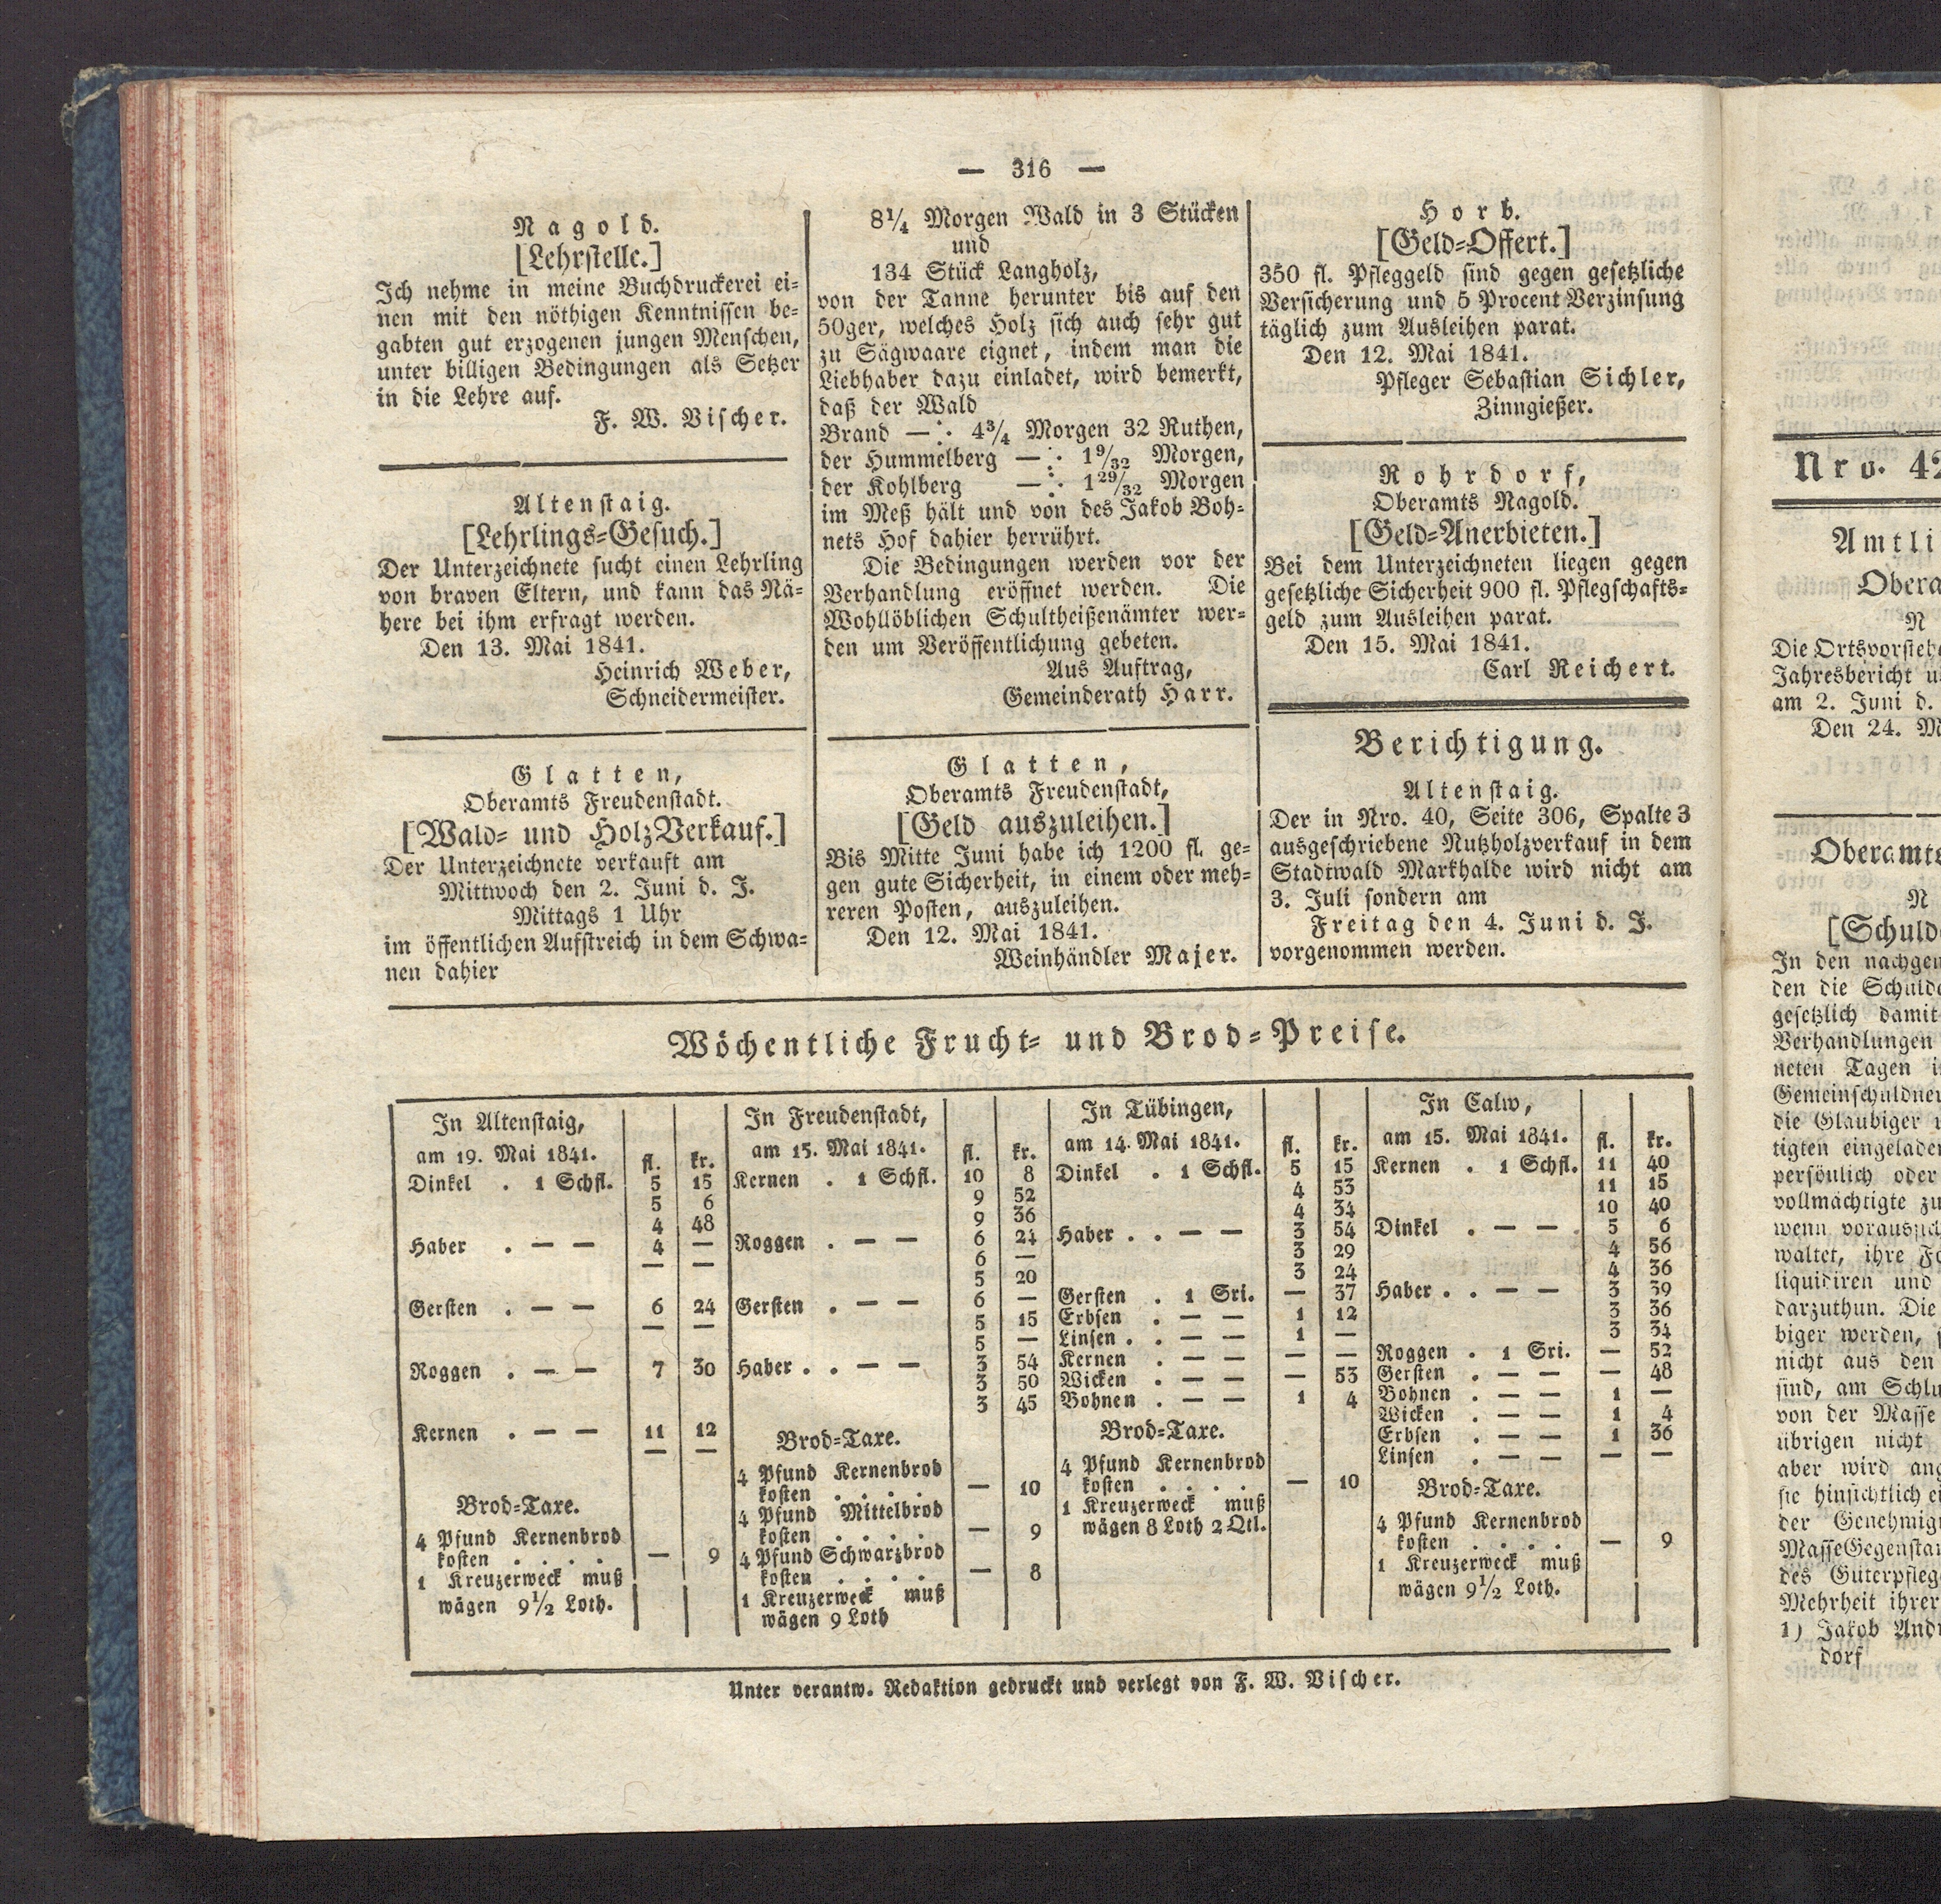 — 316 —
Nagold.
[Lehrstelle.]
Ich nehme in meine Buchdruckerei ei-
nen mit den nöthigen Kenntnissen be-
gabten gut erzogenen jungen Menschen,
unter billigen Bedingungen als Setzer
in die Lehre auf.
F. W. Vischer.
Altenstaig.
[Lehrlings-Gesuch.]
Der Unterzeichnete sucht einen Lehrling
von braven Eltern, und kann das Nä-
here bei ihm erfragt werden.
Den 13. Mai 1841.
Heinrich Weber,
Schneidermeister.
Glatten,
Oberamts Freudenstadt.
[Wald- und HolzVerkauf.]
Der Unterzeichnete verkauft am
Mittwoch den 2. Juni d. J.
Mittags 1 Uhr
im öffentlichen Aufstreich in dem Schwa-
nen dahier
8¼ Morgen Wald in 3 Stücken
und
134 Stück Langholz,
von der Tanne herunter bis auf den
50ger, welches Holz sich auch sehr gut
zu Sägwaare eignet, indem man die
Liebhaber dazu einladet, wird bemerkt,
daß der Wald
Brand —:· 4¾ Morgen 32 Ruthen,
der Hummelberg —:· 1 9/32 Morgen,
der Kohlberg —:· 1 29/32 Morgen
im Meß hält und von des Jakob Boh-
nets Hof dahier herrührt.
Die Bedingungen werden vor der
Verhandlung eröffnet werden. Die
Wohllöblichen Schultheißenämter wer-
den um Veröffentlichung gebeten.
Aus Auftrag,
Gemeinderath Harr.
Glatten,
Oberamts Freudenstadt,
[Geld auszuleihen.]
Bis Mitte Juni habe ich 1200 fl. ge-
gen gute Sicherheit, in einem oder meh-
reren Posten, auszuleihen.
Den 12. Mai 1841.
Weinhändler Majer.
Horb.
[Geld-Offert.]
350 fl. Pfleggeld sind gegen gesetzliche
Versicherung und 5 Procent Verzinsung
täglich zum Ausleihen parat.
Den 12. Mai 1841.
Pfleger Sebastian Sichler,
Zinngießer.
Rohrdorf,
Oberamts Nagold.
[Geld-Anerbieten.]
Bei dem Unterzeichneten liegen gegen
gesetzliche Sicherheit 900 fl. Pflegschafts-
geld zum Ausleihen parat.
Den 15. Mai 1841.
Carl Reichert.
Berichtigung.
Altenstaig.
Der in Nro. 40, Seite 306, Spalte 3
ausgeschriebene Nutzholzverkauf in dem
Stadtwald Markhalde wird nicht am
3. Juli sondern am
Freitag den 4. Juni d. J.
vorgenommen werden.
Wöchentliche Frucht- und Brod-Preise.
In Altenstaig,
am 19. Mai 1841. fl. kr.
Dinkel . 1 Schfl. 5 15
5 6
4 48
Haber . — — 4 —
— —
Gersten . — — 6 24
— —
Roggen . — — 7 30
Kernen . — — 11 12
— —
Brod-Taxe.
4 Pfund Kernenbrod
kosten . . . . — 9
1 Kreuzerweck muß
wägen 9½ Loth.
In Freudenstadt,
am 15. Mai 1841. fl. kr.
Kernen . 1 Schfl. 10 8
9 52
9 36
Roggen . — — 6 24
6 —
5 20
Gersten . — — 6 —
5 15
5 —
Haber . . — — 3 54
3 50
3 45
Brod-Taxe.
4 Pfund Kernenbrod
kosten . . . . — 10
4 Pfund Mittelbrod
kosten . . . . — 9
4 Pfund Schwarzbrod
kosten . . . . — 8
1 Kreuzerweck muß
wägen 9 Loth
In Tübingen,
am 14. Mai 1841. fl. kr.
Dinkel . 1 Schfl. 5 15
4 53
4 34
Haber . . — — 3 54
3 29
3 24
Gersten . 1 Sri. — 37
Erbsen . — — 1 12
Linsen . . — — 1 —
Kernen . — — — —
Wicken . — — — 53
Bohnen . — — 1 4
Brod-Taxe.
4 Pfund Kernenbrod
kosten . . . . — 10
1 Kreuzerweck muß
wägen 8 Loth 2 Qtl.
In Calw,
am 15. Mai 1841. fl. kr.
Kernen . 1 Schfl. 11 40
11 15
10 40
Dinkel . — — 5 6
4 56
4 36
Haber . . — — 3 39
3 36
3 34
Roggen . 1 Sri. — 52
Gersten . — — — 48
Bohnen . — — 1 —
Wicken . — — 1 4
Erbsen . — — 1 36
Linsen . — — — —
Brod-Taxe.
4 Pfund Kernenbrod
kosten . . . . — 9
1 Kreuzerweck muß
wägen 9½ Loth.
Unter verantw. Redaktion gedruckt und verlegt von F. W. Vischer.
Nro. 42
Amtli
Obera
N
Die Ortsvorsteh
Jahresbericht
am 2. Juni d.
Den 24. M
Oberamts
N
[Schuld
In den nachgen
den die Schuld
gesetzlich damit
Verhandlungen
neten Tagen i
Gemeinschuldner
die Gläubiger
tigten eingeladen
persönlich oder
vollmächtigte zu
wenn voraussich
waltet, ihre Fo
liquidiren und
darzuthun. Die
biger werden,
nicht aus den
sind, am Schlu
von der Masse
übrigen nicht
aber wird ang
sie hinsichtlich ei
der Genehmig
MasseGegenstän
des Güterpfleg
Mehrheit ihrer
1) Jakob And
dorf